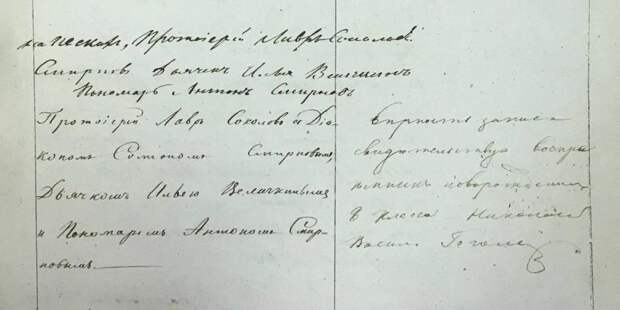 на Пескахъ, Протоіерей Лавръ Соколовъ
Смирновъ Дьячекъ Илья
Пономарь Антонъ Смирновъ
Протоіерей Лавръ Соколовъ съ Діа-
кономъ Смирновымъ,
Дьячкомъ Ильею Величкинымъ
и Пономаремъ Антономъ Смир-
новымъ
Верность записи
свидѣтельствую воспри
емникъ новорожденнаго
8 класса Николай
Васил. Гоголь